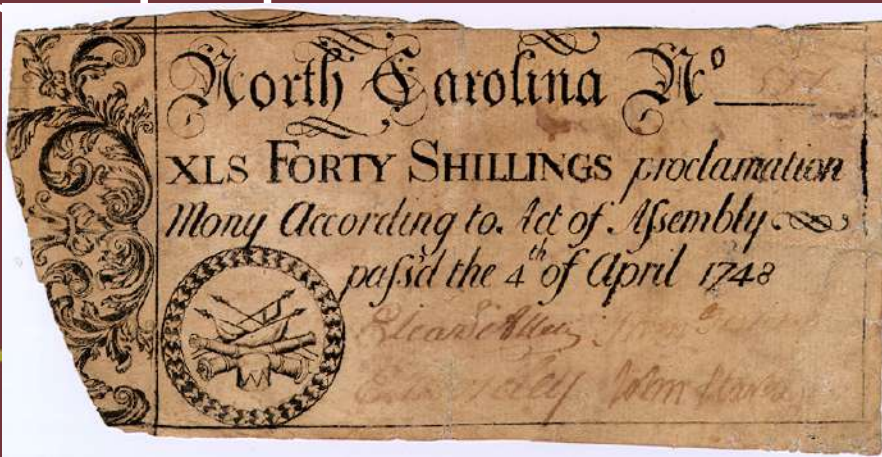 North Carolina Nº
XLS FORTY SHILLINGS proclamation
Mony According to Act of Aſsembly
paſs'd the 4th of April 1748